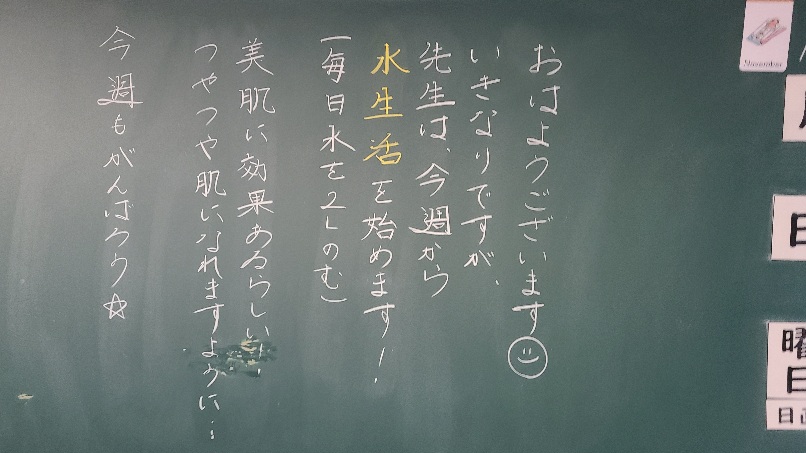 おはようございます
いきなりですが、
先生は、今週から
水生活を始めます!
(毎日水を2Lのむ)
美肌に効果あるらしい!
つやつや肌になれますように…
今週もがんばろう☆
日
曜
日